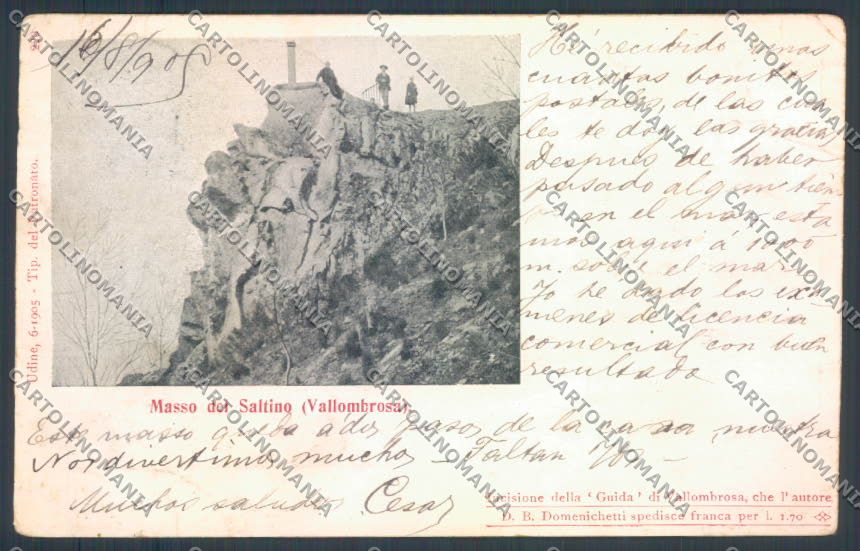 16/8/905
He recibido unas
cuantas bonitas
postales, de las cua
les te doy las gracias
Despues de haber
pasado algun tiem
po en el mar, esta
mos aqui a 1000
m. sobre el mar.
Yo he dado los exa
menes de licencia
comercial con buen
resultado
Udine, 6-1905 - Tip. del Patronato.
Masso del Saltino (Vallombrosa)
Este masso queda a dos pasos de la casa nuestra
Nos divertimos mucho - Faltan
Muchos saludos Cesar
Incisione della 'Guida' di Vallombrosa, che l'autore
D. B. Domenichetti spedisce franca per l. 1.70
CARTOLINOMANIA